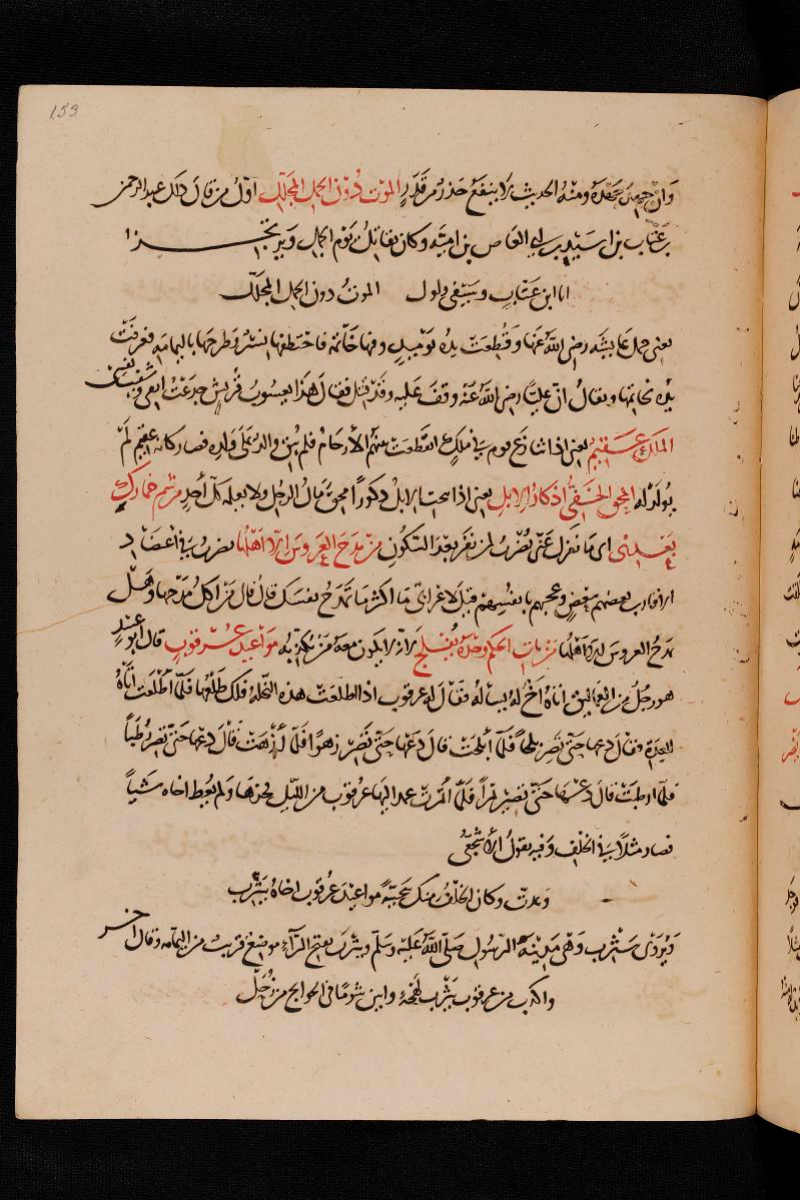 153
وان جهدَ جهدَهُ ومنْهُ الحديث لا ينفعُ حذَرٌ من قَدَرٍ الموت دُوْن الجمل المجلّل اوّلُ من قالَ ذلك عبد الرحمن
بن عتّاب بن اسَيْد بن ابي العاص بن اميّة وكان يقاتلُ يَوم الجمل ويرتجــز
انا ابن عَتّابٍ وسَيْفى ولول الموتُ دون الجمل المجلّل
يعنى جمل عايشه رضى اللهُ عنها وقُطِعَت يدُه يَومَيذٍ وفيها خَاتمُه فاختطفها نسرٌ وطرحها باليمامه فعرفت
يدُه بخاتمها ويقالُ انّ عليًّا رضى اللهُ عَنْهُ وقفَ عليه وقد قُتل فقالَ هذا يعسُوبُ قُريشٍ جدَعْتُ انفى وشفيت نفسى
الملك عَـقيمٌ يعنى اذا تنازعَ قوم فى مُلكٍ انقطعَت بينهم الأرحام فلم يُبق والدٌ على ولدِه فصار كانه عقيم لَم
يُولَدْ له المحق الخَفىُّ اذكارُ الابلِ يعنى اذا نتجت الابلُ ذكورًا محقَ مالُ الرجُل ولا يعلمه كلّ أحدٍ
اى مَا تعزل عَنّى يُضْرَبُ لمن نفر بعْدَ السّكُونِ مَنْ يمْدَح العَروسَ الّا اهْلُهَا يضربُ فى اعتضاد
الاقارب بعضهم ببعضٍ وعجبهم بانفسِهمْ قيلَ لاعرابىّ مَا اكثرَ مَا تمْدَحُ نفسَك قالَ فالى مَنْ اكِلُ مَدْحها وهَل
يمْدحُ العروسَ الّا اهلُها مَن يأتِ الحكم وحْدَهُ يُفلِج لانّه لا يكون معَهُ مَنْ يُكذّبُه مَوَاعيدُ عُرْقوبٍ قالَ ابو عبيدٍ
هو رجُلٌ من العماليق اتاهُ اخٌ لهُ يسألُهُ فقالَ له عرقوب اذا اطلعَتْ هذه النّخلة فلك طلعُها فلمّا اطْلعَت اتاهُ
للعِدَةِ فقال دعها حتى تصِيْرَ بلحًا فلمّا ابلحَتْ قالَ دَعْها حتى تَصيْرَ زهوًا فلمّا أزْهَتْ قالَ دعْها حتى تصيْرَ رُطبًا
فلمّا ارطبَتْ قالَ دَعْها حتّى تصيْرَ تمرًا فلمّا أتمرَت عمد اليها عرقوب من اللّيل فجزّها ولم يُعطِ اخاه شيئًا
فصار مثلًا فى الخلْفِ وفيه يقولُ الأشجعىُّ
وعدتَ وكان الخُلْفُ منك سَجيّةً مواعيْدَ عُرقوب اخاهُ بيَثْرب
وَيُروَى بيَثْرب وَهْى مَديْنةُ الرّسُول صَلّى اللهُ عَلَيْه وَسَلّم ويترَب بفتح الرّآءِ موضعٌ قريبٌ من اليمامه وقال آخــر
واكذب من عرقوب يَثْرب لَهْجةً وابين شومًا فى الحوايج من زُحَل